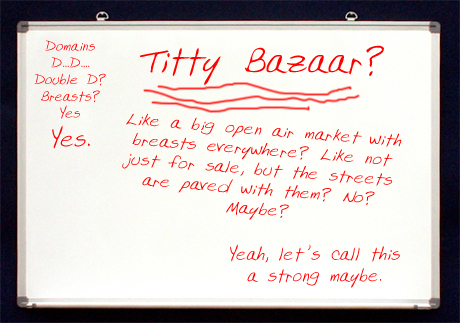 Domains
D...D....
Double D?
Breasts?
Yes
Yes.
Titty Bazaar?
Like a big open air market with
breasts everywhere? Like not
just for sale, but the streets
are paved with them? No?
Maybe?
Yeah, let's call this
a strong maybe.